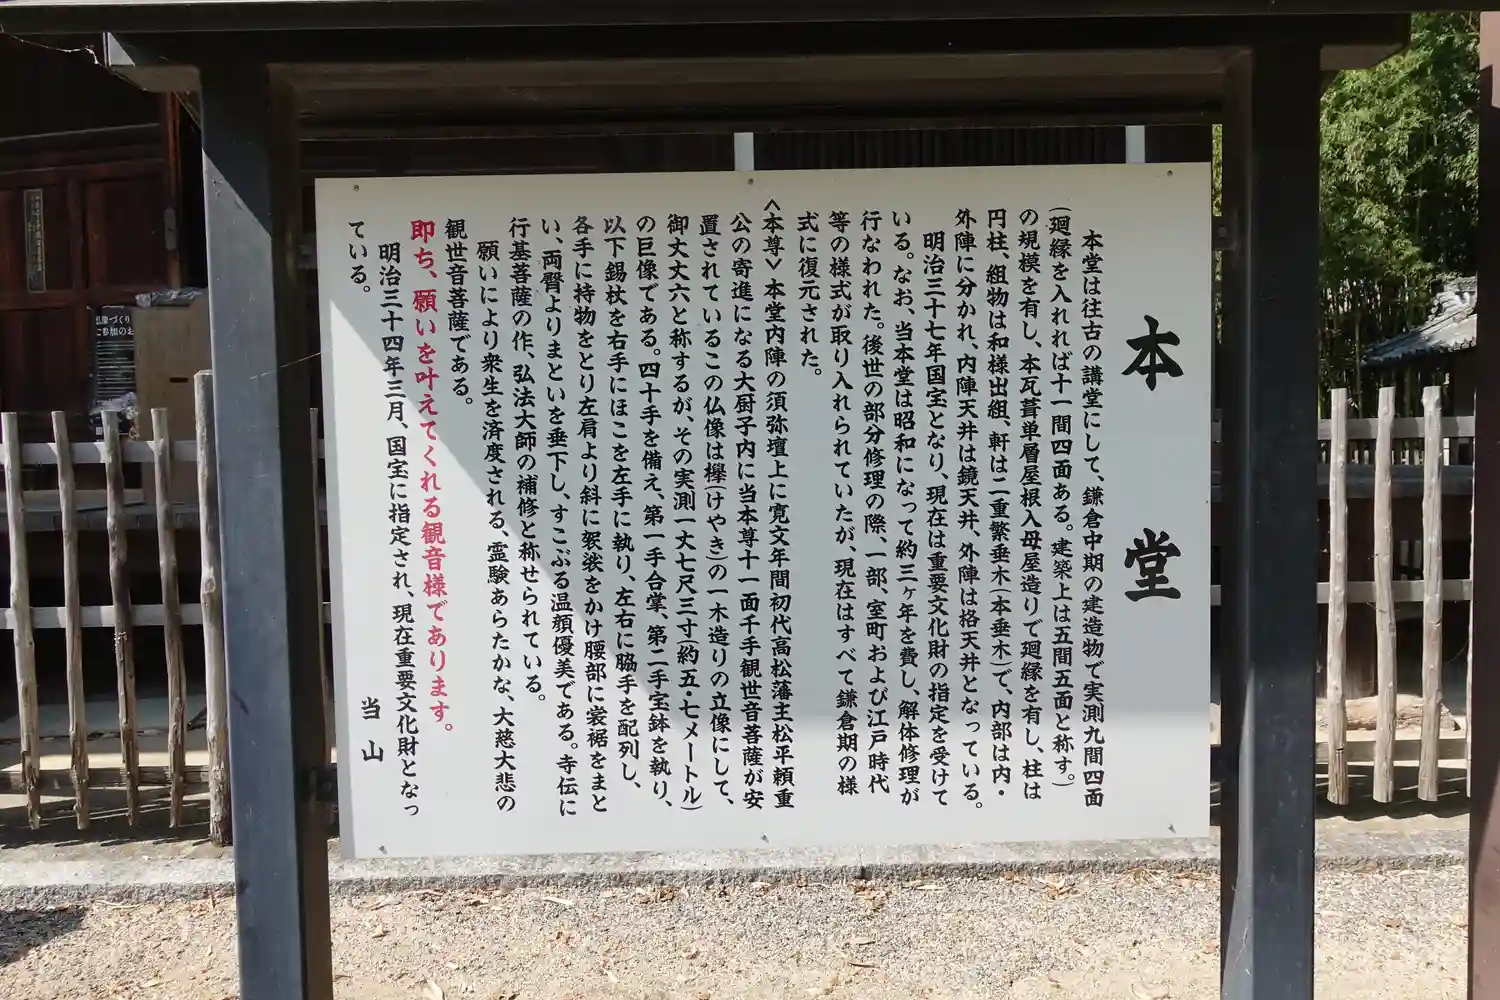 本堂
本堂は往古の講堂にして、鎌倉中期の建造物で実測九間四面
(廻縁を入れれば十一間四面ある。建築上は五間五面と称す。)
の規模を有し、本瓦葺単層屋根入母屋造りで廻縁を有し、柱は
円柱、組物は和様出組、軒は二重繁垂木(本垂木)で、内部は内・
外陣に分かれ、内陣天井は鏡天井、外陣は格天井となっている。
明治三十七年国宝となり、現在は重要文化財の指定を受けて
いる。なお、当本堂は昭和になって約三ヶ年を費し、解体修理が
行なわれた。後世の部分修理の際、一部、室町および江戸時代
等の様式が取り入れられていたが、現在はすべて鎌倉期の様
式に復元された。
<本尊>本堂内陣の須弥壇上に寛文年間初代高松藩主松平頼重
公の寄進になる大厨子内に当本尊十一面千手観世音菩薩が安
置されているこの仏像は欅(けやき)の一木造りの立像にして、
御丈丈六と称するが、その実測一丈七尺三寸(約五・七メートル)
の巨像である。四十手を備え、第一手合掌、第二手宝鉢を執り、
以下錫杖を右手にほこを左手に執り、左右に脇手を配列し、
各手に持物をとり左肩より斜に袈裟をかけ腰部に裳裾をまと
い、両臂よりまといを垂下し、すこぶる温顔優美である。寺伝に
行基菩薩の作、弘法大師の補修と称せられている。
願いにより衆生を済度される、霊験あらたかな、大慈大悲の
観世音菩薩である。
即ち、願いを叶えてくれる観音様であります。
明治三十四年三月、国宝に指定され、現在重要文化財となっ
ている。
当山
仏像づくり
ご参加のお